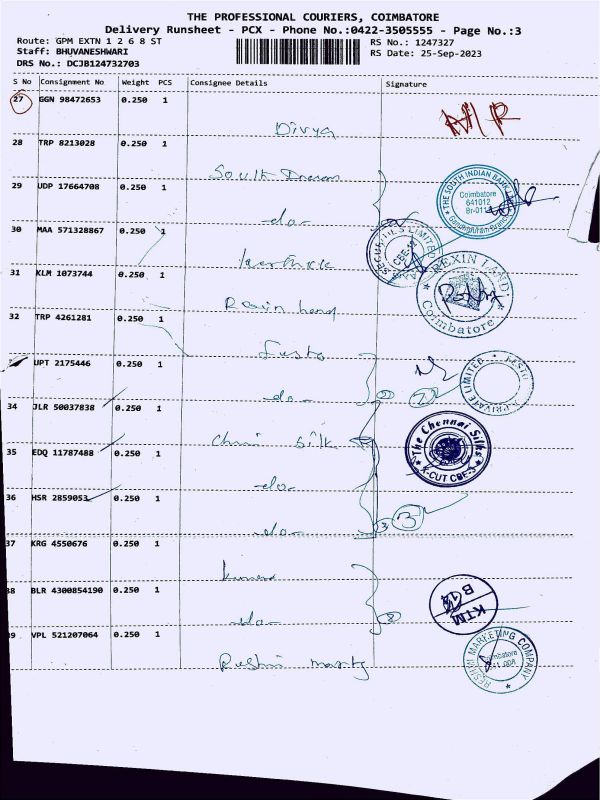 THE PROFESSIONAL COURIERS, COIMBATORE
Delivery Runsheet - PCX - Phone No.:0422-3505555 - Page No.:3
Route: GPM EXTN 1 2 6 8 ST
RS No.: 1247327
Staff: BHUVANESHWARI
RS Date: 25-Sep-2023
DRS No.: DCJB124732703
S No Consignment No Weight PCS Consignee Details Signature
27 GGN 98472653 0.250 1
Divya
28 TRP 8213028 0.250 1
South
29 UDP 17664708 0.250 1
-do-
THE SOUTH INDIAN BANK
Coimbatore
641012
30 MAA 571328867 0.250 1
LIMITED
CBE-12
31 KLM 1073744 0.250 1
REXIN LAND
Coimbatore
32 TRP 4261281 0.250 1
Festo
UPT 2175446 0.250 1
-do- 2 2
FESTO PRIVATE LIMITED
34 JLR 50037838 0.250 1
silk
The Chennai Silks
X-CUT CBE-3
35 EDQ 11787488 0.250 1
-do-
36 HSR 2859053 0.250 1
-do- 3 3
37 KRG 4550676 0.250 1
38 BLR 4300854190 0.250 1
-do- 2
KTM
B
39 VPL 521207064 0.250 1
MARKETING COMPANY
Coimbatore